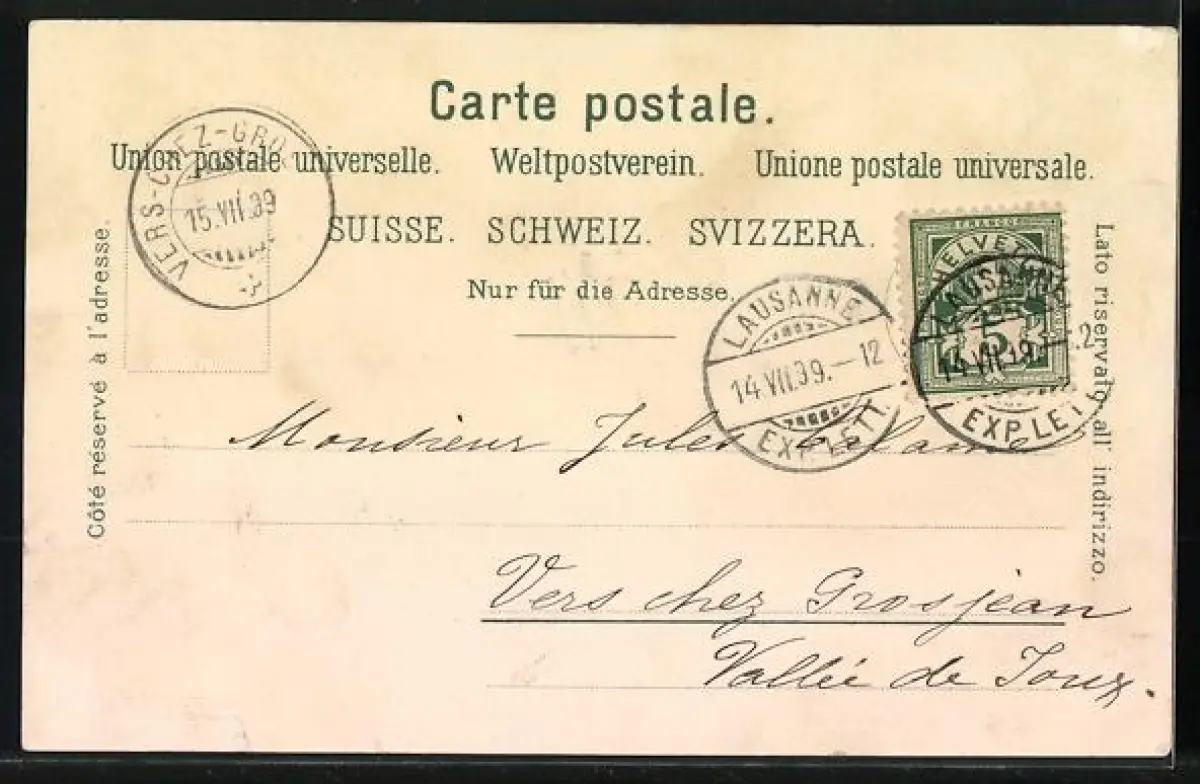 Carte postale.
Union postale universelle. Weltpostverein. Unione postale universale.
SUISSE. SCHWEIZ. SVIZZERA.
Nur für die Adresse.
Côté réservé à l'adresse.
Lato riservato all' indirizzo.
VERS-CHEZ-GRO
15.VII.99
LAUSANNE
14.VII.99.–12
EXP. LETT.
FRANCO
HELVET
5
LAUSANNE
14.VII.99.
EXP. LET
Monsieur Jules
Vers chez Grosjean
Vallée de Joux.